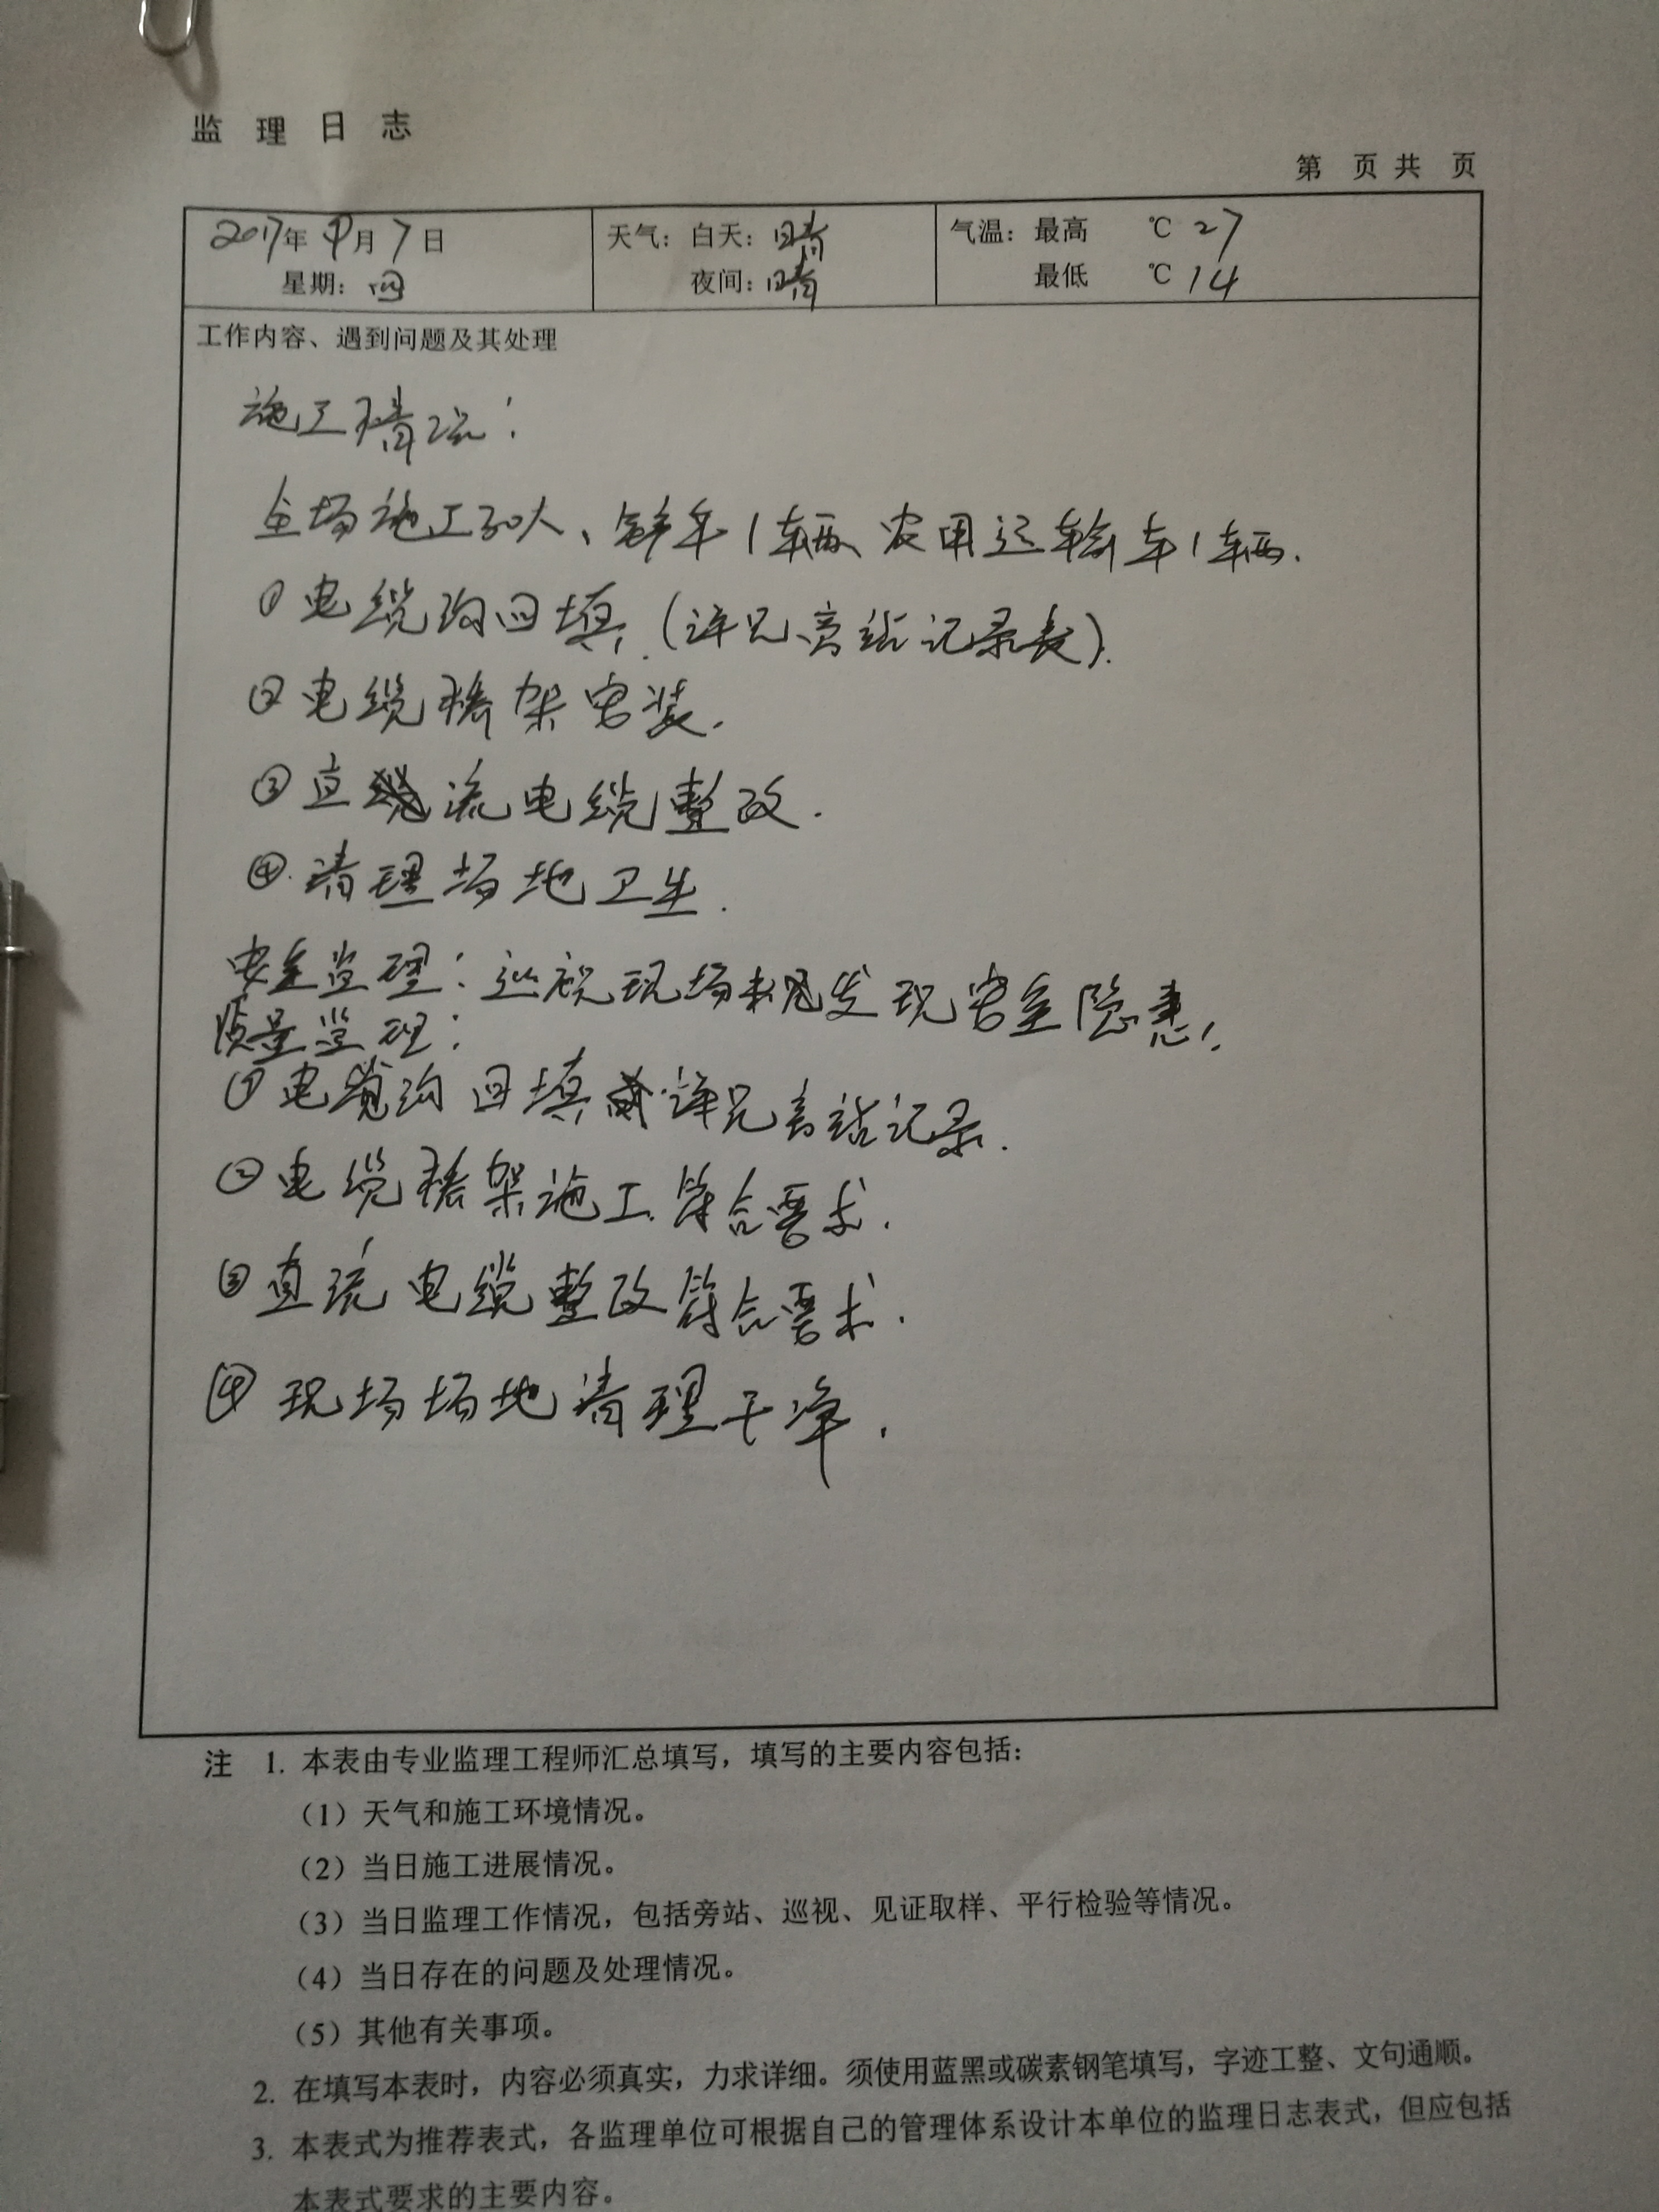 监理日志
第 页 共 页
2017年9月7日
星期：四
天气：白天：晴
夜间：晴
气温：最高 ℃ 27
最低 ℃ 14
工作内容、遇到问题及其处理
施工情况：
全场施工30人、车1辆、农用运输车1辆.
①电缆沟回填.(详见旁站记录表).
②电缆桥架安装.
③直流电缆整改.
④.清理场地卫生.
安全监理：巡视现场未发现安全隐患!.
质量监理：
①电缆沟回填详见旁站记录.
②电缆桥架施工符合要求.
③直流电缆整改符合要求.
④现场场地清理干净.
注 1. 本表由专业监理工程师汇总填写，填写的主要内容包括：
（1）天气和施工环境情况。
（2）当日施工进展情况。
（3）当日监理工作情况，包括旁站、巡视、见证取样、平行检验等情况。
（4）当日存在的问题及处理情况。
（5）其他有关事项。
2. 在填写本表时，内容必须真实，力求详细。须使用蓝黑或碳素钢笔填写，字迹工整、文句通顺。
3. 本表式为推荐表式，各监理单位可根据自己的管理体系设计本单位的监理日志表式，但应包括
本表式要求的主要内容。